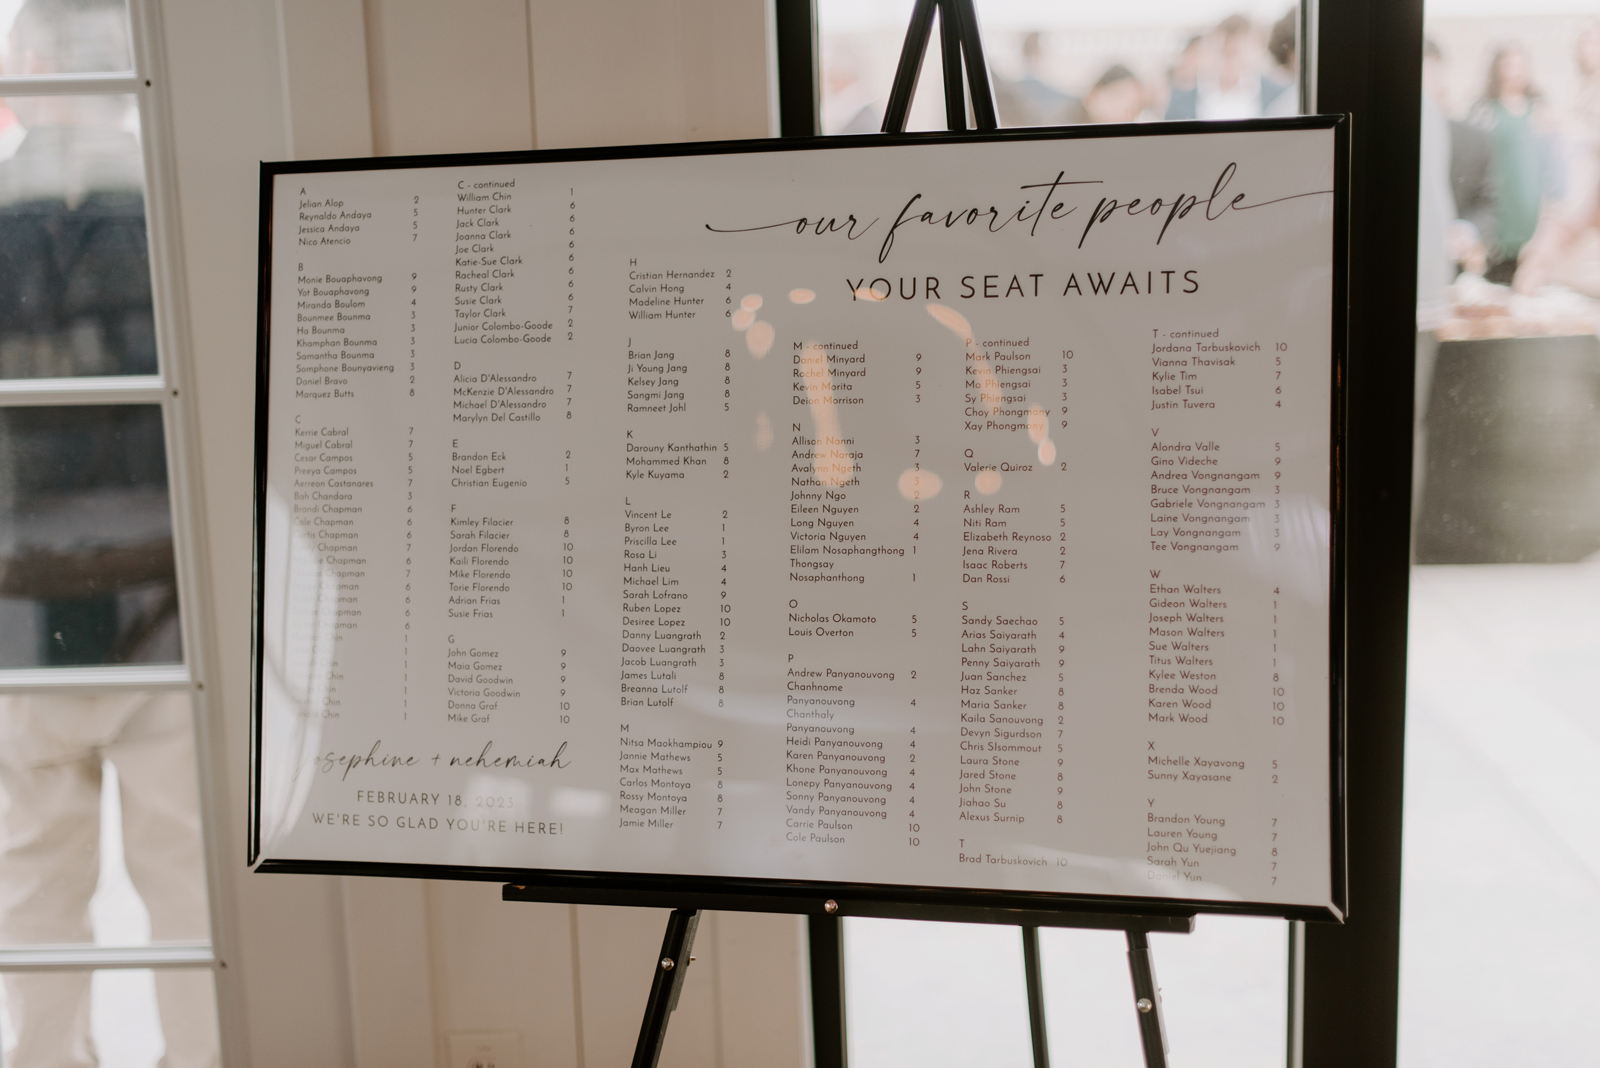 our favorite people
YOUR SEAT AWAITS
A
Jelian Alop 2
Reynaldo Andaya 5
Jessica Andaya 5
Nico Atencio 7
B
Monie Bouaphavong 9
Yot Bouaphavong 9
Miranda Boulom 4
Bounmee Bounma 3
Ho Bounma 3
Khamphan Bounma 3
Samantha Bounma 3
Somphone Bounyavieng 3
Daniel Bravo 2
Marquez Butts 8
C
Kerrie Cabral 7
Miguel Cabral 7
Cesar Campos 5
Preeya Campos 5
Aerreon Castanares 7
Bah Chandara 3
Brandi Chapman 6
Cole Chapman 6
Curtis Chapman 6
Chapman 7
Chapman 6
Chapman 7
Chapman 6
Chapman 6
Chapman 6
Chin 1
1
Chin 1
Chin 1
Chin 1
Chin 1
C - continued
William Chin 1
Hunter Clark 6
Jack Clark 6
Joanna Clark 6
Joe Clark 6
Katie-Sue Clark 6
Racheal Clark 6
Rusty Clark 6
Susie Clark 6
Taylor Clark 7
Junior Colombo-Goode 2
Lucia Colombo-Goode 2
D
Alicia D'Alessandro 7
McKenzie D'Alessandro 7
Michael D'Alessandro 7
Marylyn Del Castillo 8
E
Brandon Eck 2
Noel Egbert 1
Christian Eugenio 5
F
Kimley Filacier 8
Sarah Filacier 8
Jordan Florendo 10
Kaili Florendo 10
Mike Florendo 10
Torie Florendo 10
Adrian Frias 1
Susie Frias 1
G
John Gomez 9
Maia Gomez 9
David Goodwin 9
Victoria Goodwin 9
Donna Graf 10
Mike Graf 10
H
Cristian Hernandez 2
Calvin Hong 4
Madeline Hunter 6
William Hunter 6
J
Brian Jang 8
Ji Young Jang 8
Kelsey Jang 8
Sangmi Jang 8
Ramneet Johl 5
K
Darouny Kanthathin 5
Mohammed Khan 8
Kyle Kuyama 2
L
Vincent Le 2
Byron Lee 1
Priscilla Lee 1
Rosa Li 3
Hanh Lieu 4
Michael Lim 4
Sarah Lofrano 9
Ruben Lopez 10
Desiree Lopez 10
Danny Luangrath 2
Daovee Luangrath 3
Jacob Luangrath 3
James Lutali 8
Breanna Lutolf 8
Brian Lutolf 8
M
Nitsa Maokhampiou 9
Jannie Mathews 5
Max Mathews 5
Carlos Montoya 8
Rossy Montoya 8
Meagan Miller 7
Jamie Miller 7
M - continued
Daniel Minyard 9
Rachel Minyard 9
Kevin Morita 5
Deion Morrison 3
N
Allison Nanni 3
Andrew Naraja 7
Avalynn Ngeth 3
Nathan Ngeth 3
Johnny Ngo 2
Eileen Nguyen 2
Long Nguyen 4
Victoria Nguyen 4
Elilam Nosaphangthong 1
Thongsay
Nosaphanthong 1
O
Nicholas Okamoto 5
Louis Overton 5
P
Andrew Panyanouvong 2
Chanhnome
Panyanouvong 4
Chanthaly
Panyanouvong 4
Heidi Panyanouvong 4
Karen Panyanouvong 2
Khone Panyanouvong 4
Lonepy Panyanouvong 4
Sonny Panyanouvong 4
Vandy Panyanouvong 4
Carrie Paulson 10
Cole Paulson 10
P - continued
Mark Paulson 10
Kevin Phiengsai 3
Mo Phiengsai 3
Sy Phiengsai 3
Choy Phongmany 9
Xay Phongmany 9
Q
Valerie Quiroz 2
R
Ashley Ram 5
Niti Ram 5
Elizabeth Reynoso 2
Jena Rivera 2
Isaac Roberts 7
Dan Rossi 6
S
Sandy Saechao 5
Arias Saiyarath 4
Lahn Saiyarath 9
Penny Saiyarath 9
Juan Sanchez 5
Haz Sanker 8
Maria Sanker 8
Kaila Sanouvong 2
Devyn Sigurdson 7
Chris SIsommout 5
Laura Stone 9
Jared Stone 8
John Stone 9
Jiahao Su 8
Alexus Surnip 8
T
Brad Tarbuskovich 10
T - continued
Jordana Tarbuskovich 10
Vianna Thavisak 5
Kylie Tim 7
Isabel Tsui 6
Justin Tuvera 4
V
Alondra Valle 5
Gino Videche 9
Andrea Vongnangam 9
Bruce Vongnangam 3
Gabriele Vongnangam 3
Laine Vongnangam 3
Lay Vongnangam 3
Tee Vongnangam 9
W
Ethan Walters 4
Gideon Walters 1
Joseph Walters 1
Mason Walters 1
Sue Walters 1
Titus Walters 1
Kylee Weston 8
Brenda Wood 10
Karen Wood 10
Mark Wood 10
X
Michelle Xayavong 5
Sunny Xayasane 2
Y
Brandon Young 7
Lauren Young 7
John Qu Yuejiang 8
Sarah Yun 7
Daniel Yun 7
josephine + nehemiah
FEBRUARY 18, 2023
WE'RE SO GLAD YOU'RE HERE!